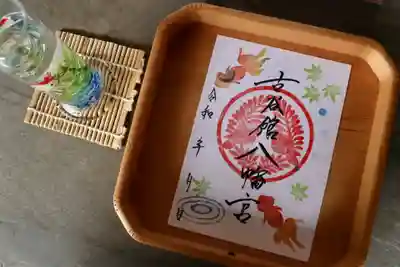 古舘八幡宮
令和 年 月